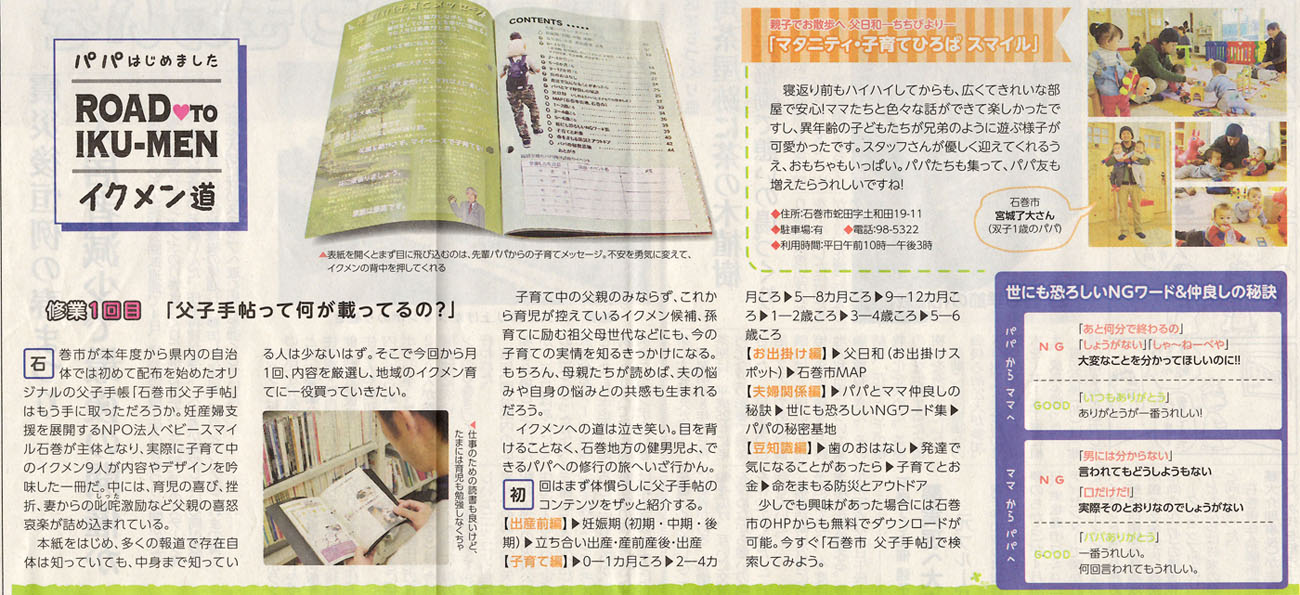 パパはじめました
ROAD♥TO
IKU-MEN
イクメン道
CONTENTS
▲表紙を開くとまず目に飛び込むのは、先輩パパからの子育てメッセージ。不安を勇気に変えて、
イクメンの背中を押してくれる
親子でお散歩へ 父日和―ちちびより―
「マタニティ・子育てひろば スマイル」
寝返り前もハイハイしてからも、広くてきれいな部
屋で安心!ママたちと色々な話ができて楽しかったで
すし、異年齢の子どもたちが兄弟のように遊ぶ様子が
可愛かったです。スタッフさんが優しく迎えてくれるう
え、おもちゃもいっぱい。パパたちも集って、パパ友も
増えたらうれしいですね!
◆住所:石巻市蛇田字土和田19-11
◆駐車場:有 ◆電話:98-5322
◆利用時間:平日午前10時―午後3時
石巻市
宮城了大さん
(双子1歳のパパ)
修業1回目 「父子手帖って何が載ってるの?」
石巻市が本年度から県内の自治
体では初めて配布を始めたオリ
ジナルの父子手帳「石巻市父子手帖」
はもう手に取っただろうか。妊産婦支
援を展開するNPO法人ベビースマイ
ル石巻が主体となり、実際に子育て中
のイクメン9人が内容やデザインを吟
味した一冊だ。中には、育児の喜び、挫
折、妻からの叱咤激励など父親の喜怒
しった
哀楽が詰め込まれている。
本紙をはじめ、多くの報道で存在自
体は知っていても、中身まで知ってい
る人は少ないはず。そこで今回から月
1回、内容を厳選し、地域のイクメン育
てに一役買っていきたい。
▲仕事のための読書も良いけど、
たまには育児も勉強しなくちゃ
子育て中の父親のみならず、これか
ら育児が控えているイクメン候補、孫
育てに励む祖父母世代などにも、今の
子育ての実情を知るきっかけになる。
もちろん、母親たちが読めば、夫の悩
みや自身の悩みとの共感も生まれる
だろう。
イクメンへの道は泣き笑い。目を背
けることなく、石巻地方の健男児よ、で
きるパパへの修行の旅へいざ行かん。
初回はまず体慣らしに父子手帖の
コンテンツをザッと紹介する。
【出産前編】▶妊娠期(初期・中期・後
期)▶立ち合い出産・産前産後・出産
【子育て編】▶0―1カ月ころ▶2―4カ
月ころ▶5―8カ月ころ▶9―12カ月こ
ろ▶1―2歳ころ▶3―4歳ころ▶5―6
歳ころ
【お出掛け編】▶父日和(お出掛けス
ポット)▶石巻市MAP
【夫婦関係編】▶パパとママ仲良しの
秘訣▶世にも恐ろしいNGワード集▶
パパの秘密基地
【豆知識編】▶歯のおはなし▶発達で
気になることがあったら▶子育てとお
金▶命をまもる防災とアウトドア
少しでも興味があった場合には石巻
市のHPからも無料でダウンロードが
可能。今すぐ「石巻市 父子手帖」で検
索してみよう。
世にも恐ろしいNGワード&仲良しの秘訣
パパからママへ
NG
「あと何分で終わるの」
「しょうがない」「しゃ~ねーべや」
大変なことを分かってほしいのに!!
GOOD
「いつもありがとう」
ありがとうが一番うれしい!
ママからパパへ
NG
「男には分からない」
言われてもどうしようもない
「口だけだ!」
実際そのとおりなのでしょうがない
GOOD
「パパありがとう」
一番うれしい。
何回言われてもうれしい。